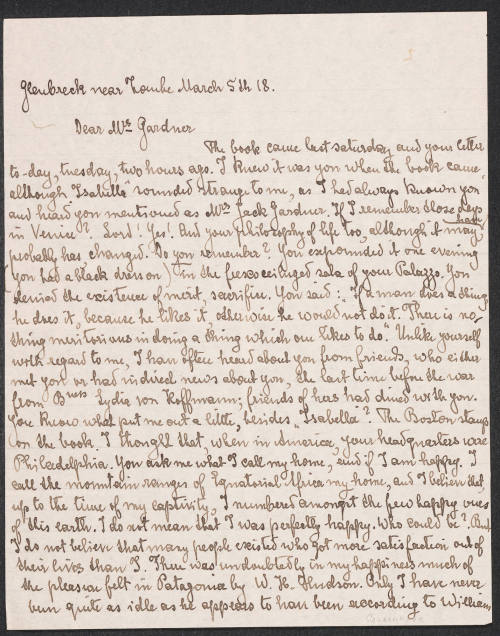 Glenbreck near Zomba March 5th 18.
Dear Mrs Gardner
The book came last saturday and your letter
to-day, tuesday, two hours ago. I knew it was you when the book came
although "Isabella" sounded strange to me, as I had always known you
and heard you mentioned as Mrs Jack Gardner. If I remember those days
in Venice? Lord! Yes! And your philosophy of life too, although it may
have
probably has changed. Do you remember? You expounded it one evening
(you had a black dress on) in the ceilinged sala of your Palazzo. You
denied the existence of merit, sacrifice. You said: "If a man does a thing
he does it, because he likes it otherwise he would not do it. There is no-
thing meritorious in doing a thing which one likes to do." Unlike yourself
with regard to me, I have often heard about you from friends, who either
met you or had indirect news about you, the last time before the war
from Bness Lydia von Hoffmann; friends of hers had dined with you.
You know what put me out a little, besides "Isabella"? The Boston stamp
on the book. I thought that, when in America, your headquarters were
Philadelphia. You ask me what I call my home, and if I am happy. I
call the mountain ranges of Equatorial Africa my home, and I believe that,
up to the time of my captivity, I numbered amongst the few happy ones
of this earth. I do not mean that I was perfectly happy. Who could be? But
I do not believe that many people existed who got more satisfaction out of
their lives than I. There was undoubtedly in my happiness much of
the pleasure felt in Patagonia by W. H. Hudson. Only I have never
been quite as idle as he appears to have been according to William